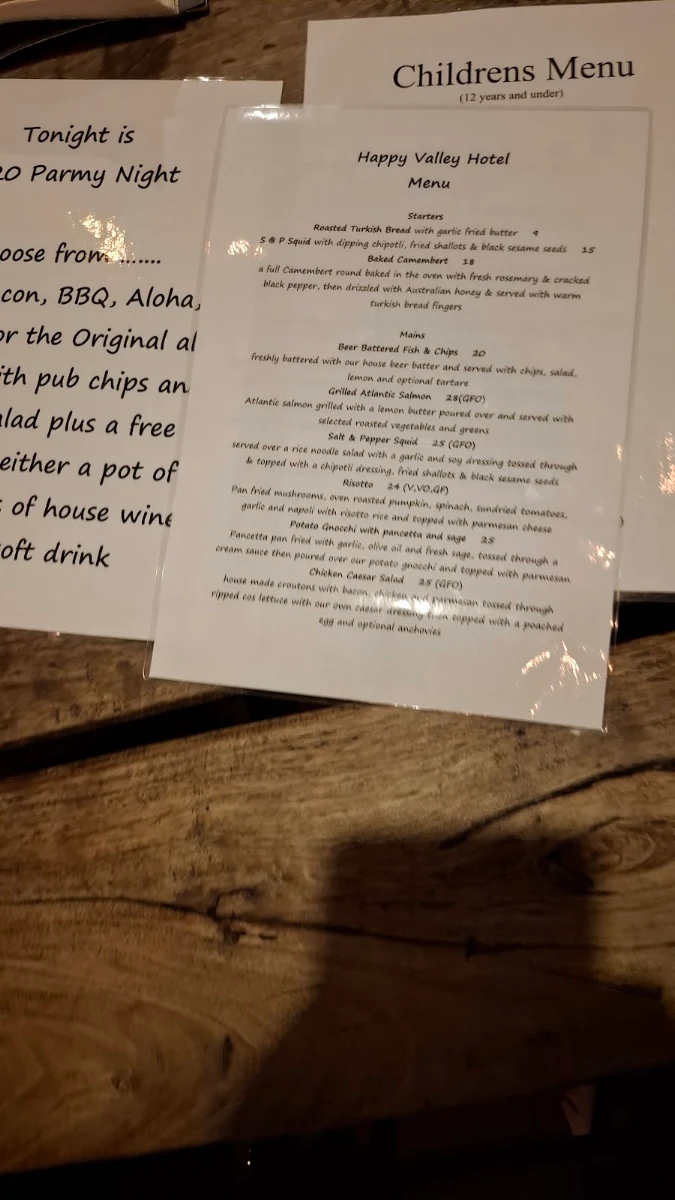 Childrens Menu
(12 years and under)
Tonight is
20 Parmy Night
oose from.......
con, BBQ, Aloha,
or the Original al
ith pub chips an
alad plus a free
either a pot of
s of house wine
oft drink
Happy Valley Hotel
Menu
Starters
Roasted Turkish Bread with garlic fried butter 9
S & P Squid with dipping chipotli, fried shallots & black sesame seeds 15
Baked Camembert 18
a full Camembert round baked in the oven with fresh rosemary & cracked
black pepper, then drizzled with Australian honey & served with warm
turkish bread fingers
Mains
Beer Battered Fish & Chips 20
freshly battered with our house beer batter and served with chips, salad,
lemon and optional tartare
Grilled Atlantic Salmon 28(GFO)
Atlantic salmon grilled with a lemon butter poured over and served with
selected roasted vegetables and greens
Salt & Pepper Squid 25 (GFO)
served over a rice noodle salad with a garlic and soy dressing tossed through
& topped with a chipotli dressing, fried shallots & black sesame seeds
Risotto 24 (V,VO,GF)
Pan fried mushrooms, oven roasted pumpkin, spinach, sundried tomatoes,
garlic and napoli with risotto rice and topped with parmesan cheese
Potato Gnocchi with pancetta and sage 25
Pancetta pan fried with garlic, olive oil and fresh sage, tossed through a
cream sauce then poured over our potato gnocchi and topped with parmesan
Chicken Caesar Salad 25 (GFO)
house made croutons with bacon, chicken and parmesan tossed through
ripped cos lettuce with our own caesar dressing then topped with a poached
egg and optional anchovies
)